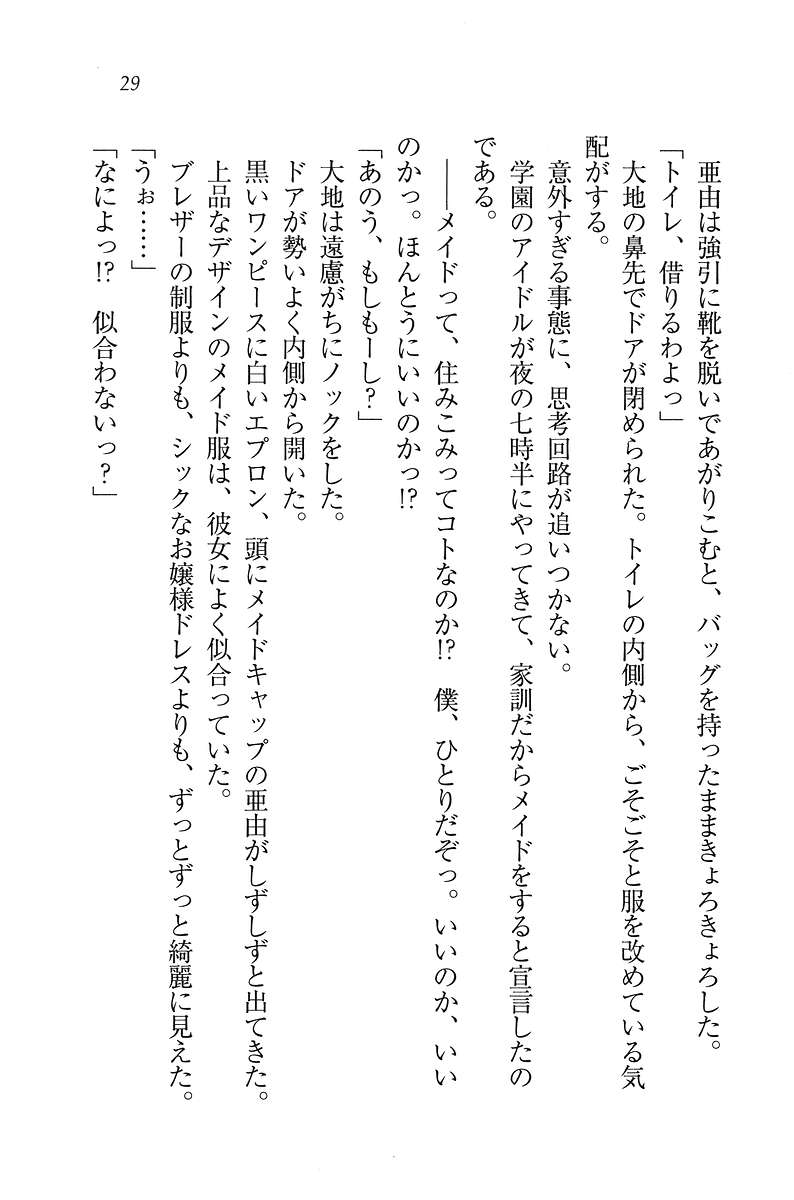 29
亜由は強引に靴を脱いであがりこむと、バッグを持ったままきょろきょろした。
「トイレ、借りるわよっ」
大地の鼻先でドアが閉められた。トイレの内側から、ごそごそと服を改めている気
配がする。
意外すぎる事態に、思考回路が追いつかない。
学園のアイドルが夜の七時半にやってきて、家訓だからメイドをすると宣言したの
である。
――メイドって、住みこみってコトなのか!?　僕、ひとりだぞっ。いいのか、いい
のかっ。ほんとうにいいのかっ!?
「あのう、もしもーし?」
大地は遠慮がちにノックをした。
ドアが勢いよく内側から開いた。
黒いワンピースに白いエプロン、頭にメイドキャップの亜由がしずしずと出てきた。
上品なデザインのメイド服は、彼女によく似合っていた。
ブレザーの制服よりも、シックなお嬢様ドレスよりも、ずっとずっと綺麗に見えた。
「うぉ……」
「なによっ!?　似合わないっ?」